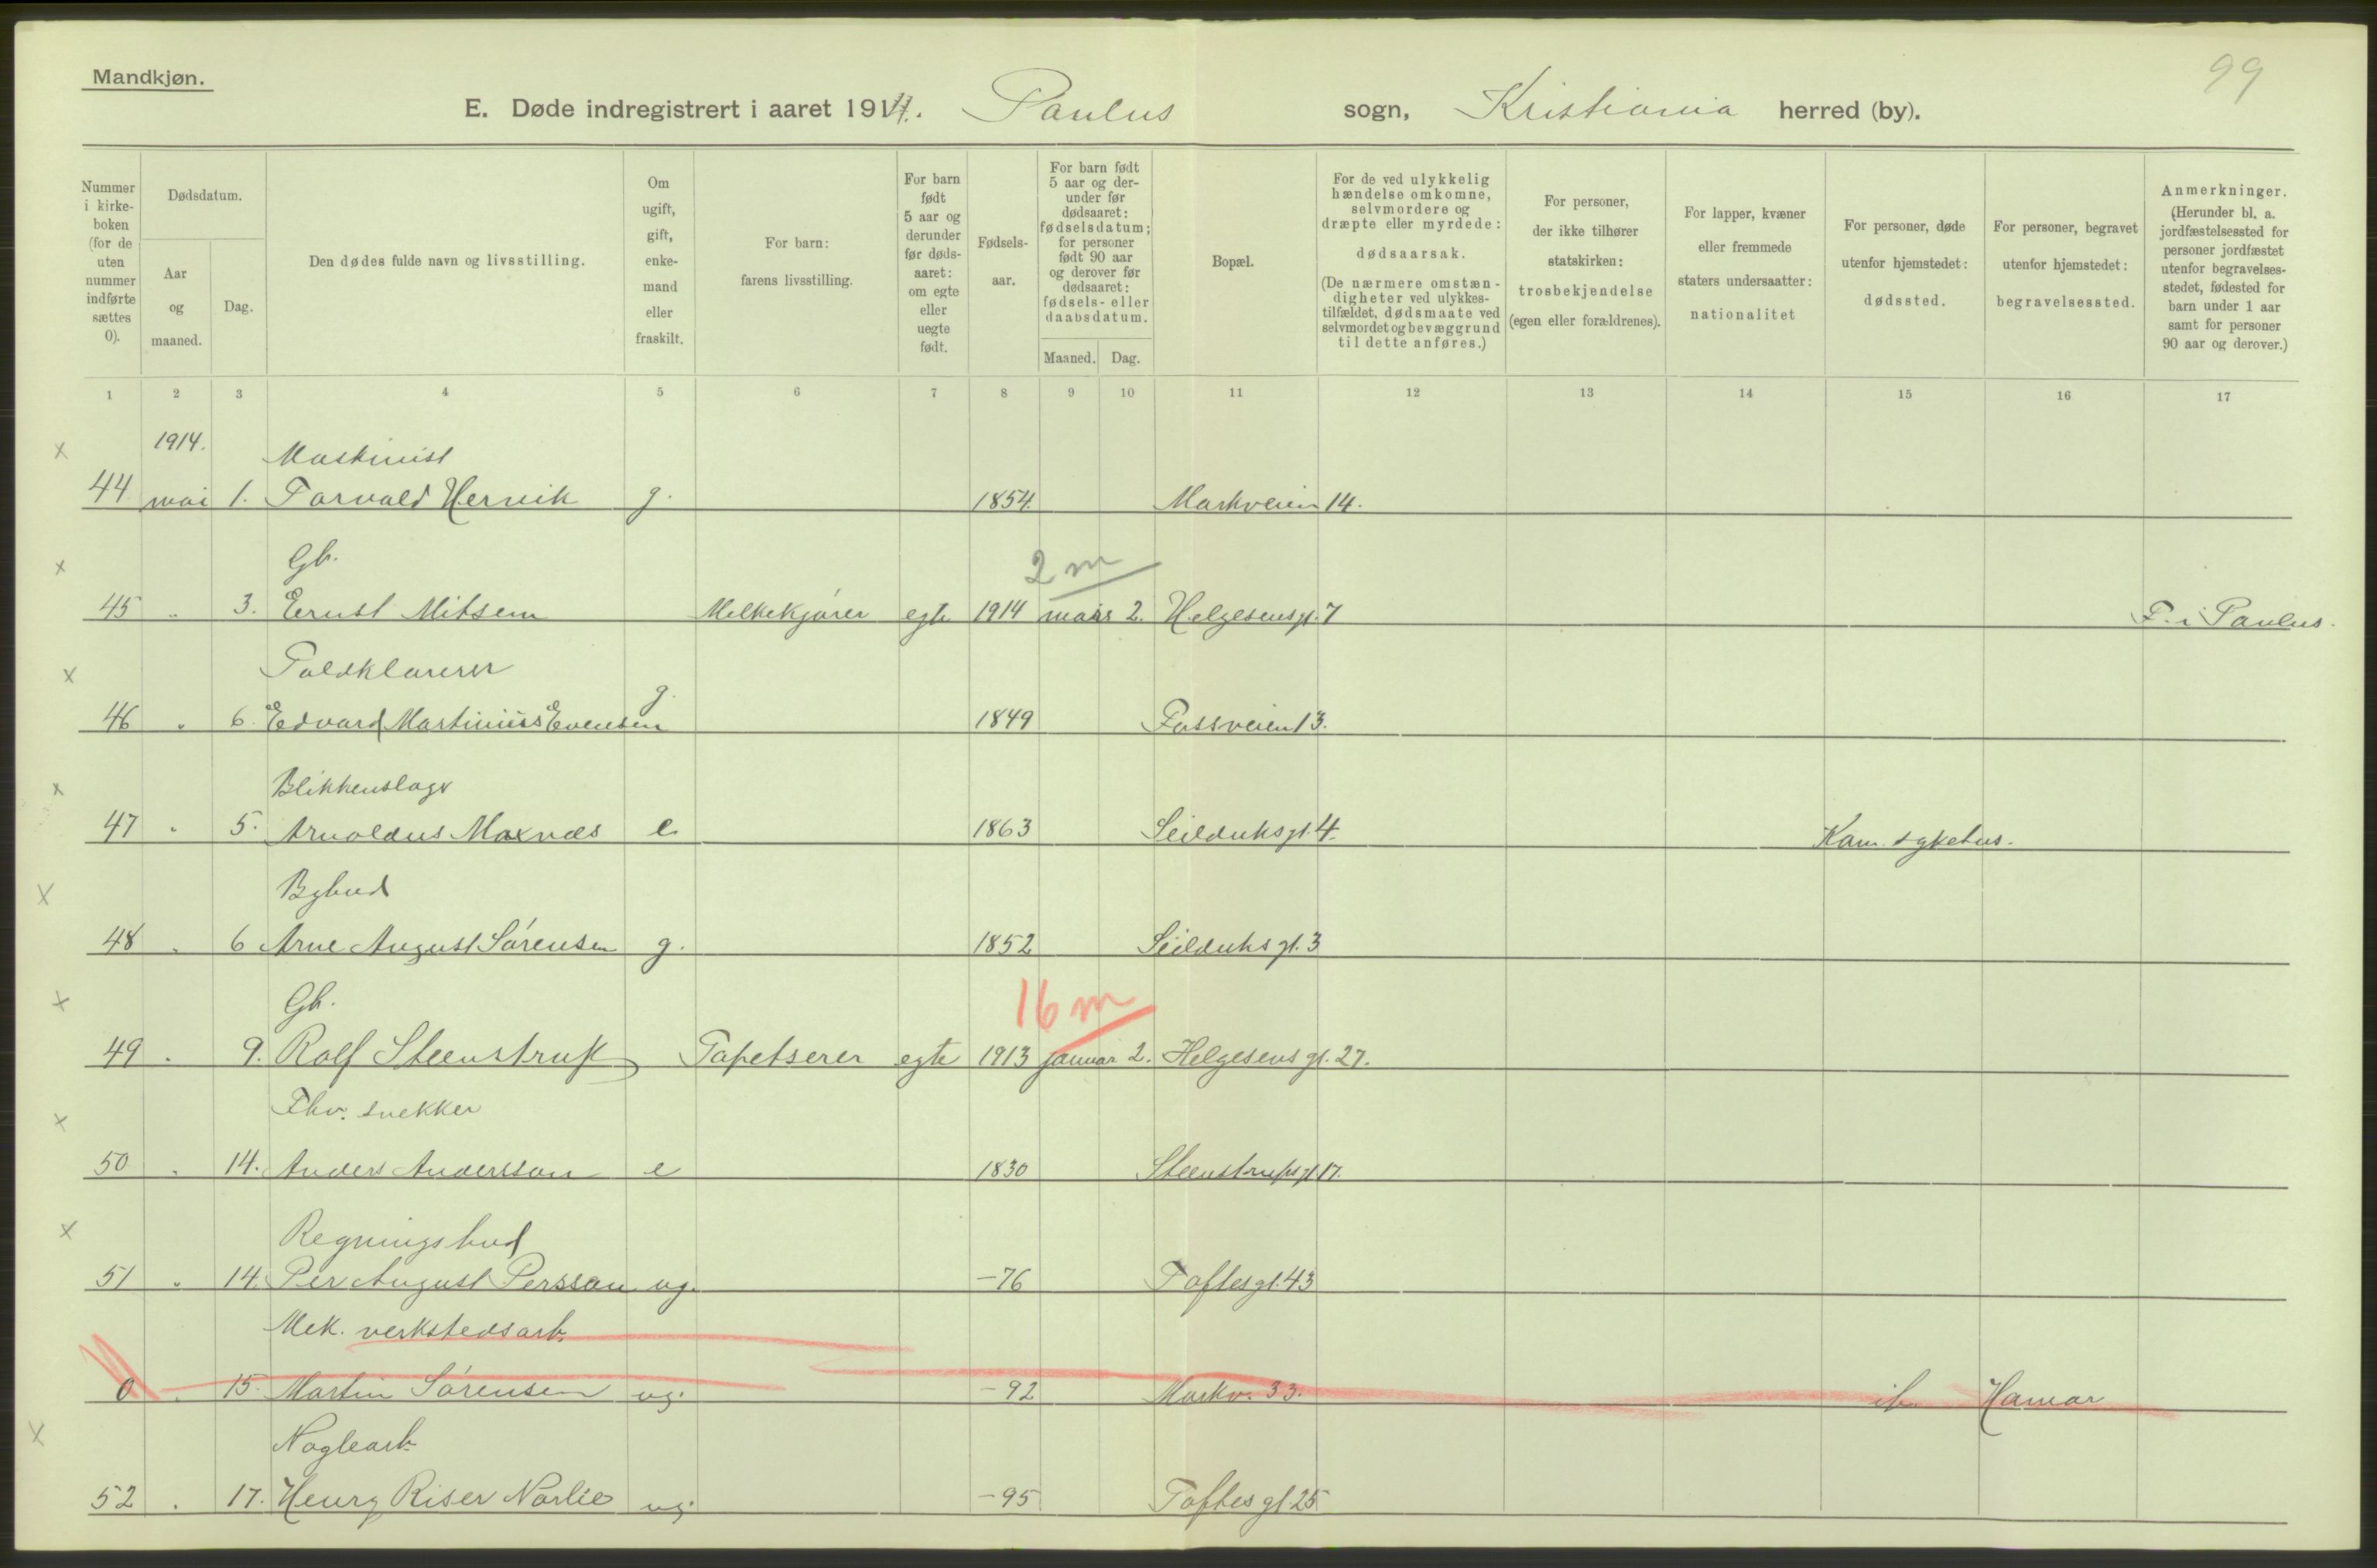 99
Mandkjøn.
E. Døde indregistrert i aaret 1914. Paulus sogn, Kristiania herred (by).
Nummer i kirke-boken (for de uten nummer indførte sættes 0).
Dødsdatum.
Aar og maaned.
Dag.
Den dødes fulde navn og livsstilling.
Om ugift, gift, enke-mand eller fraskilt.
For barn: farens livsstilling.
For barn født 5 aar og derunder før døds-aaret: om egte eller uegte født.
Fødsels-aar.
For barn født 5 aar og der-under før dødsaaret: fødselsdatum; for personer født 90 aar og derover før dødsaaret: fødsels- eller daabsdatum.
Maaned. Dag.
Bopæl.
For de ved ulykkelig hændelse omkomne, selvmordere og dræpte eller myrdede: dødsaarsak.
(De nærmere omstæn-digheter ved ulykkes-tilfældet, dødsmaate ved selvmordet og bevæggrund til dette anføres.)
For personer, der ikke tilhører statskirken: trosbekjendelse (egen eller forældrenes).
For lapper, kvæner eller fremmede staters undersaatter: nationalitet
For personer, døde utenfor hjemstedet: dødssted.
For personer, begravet utenfor hjemstedet: begravelsessted.
Anmerkninger. (Herunder bl. a. jordfæstelsessted for personer jordfæstet utenfor begravelses-stedet, fødested for barn under 1 aar samt for personer 90 aar og derover.)
1 2 3 4 5 6 7 8 9 10 11 12 13 14 15 16 17
x 1914. Maskinist
44 mai 1. Torvald Hervik g. 1854. Markveien 14.
x Gb. 2 m
45 " 3. Ernst Mitsem Melkekjører egte 1914 mars 2. Helgesensgt. 7 F. i Paulus.
x Toldklarerer
46 " 6. Edvard Martinius Evensen g. 1849 Fossveien 13.
x Blikkenslager
47 " 5. Arnoldus Moxnæs e 1863 Seilduksgt. 4. Kom. sykehus.
x Bybud
48 " 6 Arne August Sørensen g. 1852 Seilduksgt. 3
x Gb. 16 m
49 " 9. Rolf Steenstrup Tapetserer egte 1913 januar 2. Helgesens gt. 27.
x Fhv. snekker
50 " 14. Anders Andersson e 1830 Steenstrupsgt. 17.
x Regningsbud
51 " 14. Per August Persson ug. -76 Toftesgt. 43
Mek. verkstedsarb.
0 " 15. Martin Sørensen ug. -92 Markv. 33. Hamar
x Naglearb.
52 " 17. Henry Riser Norlie ug. -95 Toftes gt. 25